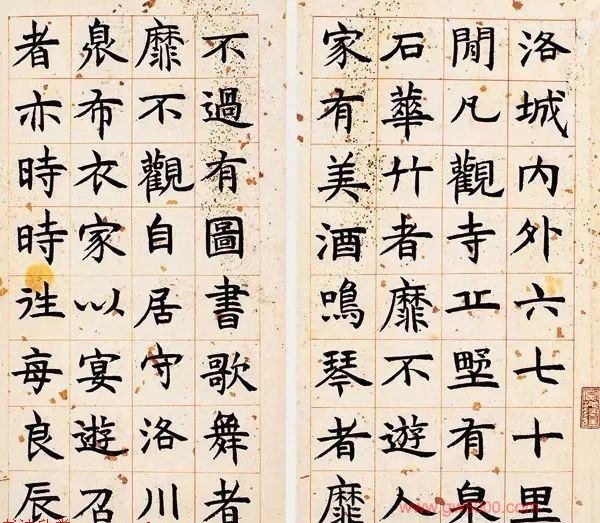 洛城内外六七十里
閒凡觀寺丘墅有泉
石華竹者靡不遊人
家有美酒鳴琴者靡
不過有圖書歌舞者
靡不觀自居守洛川
臮布衣家以宴遊召
者亦時時往每良辰